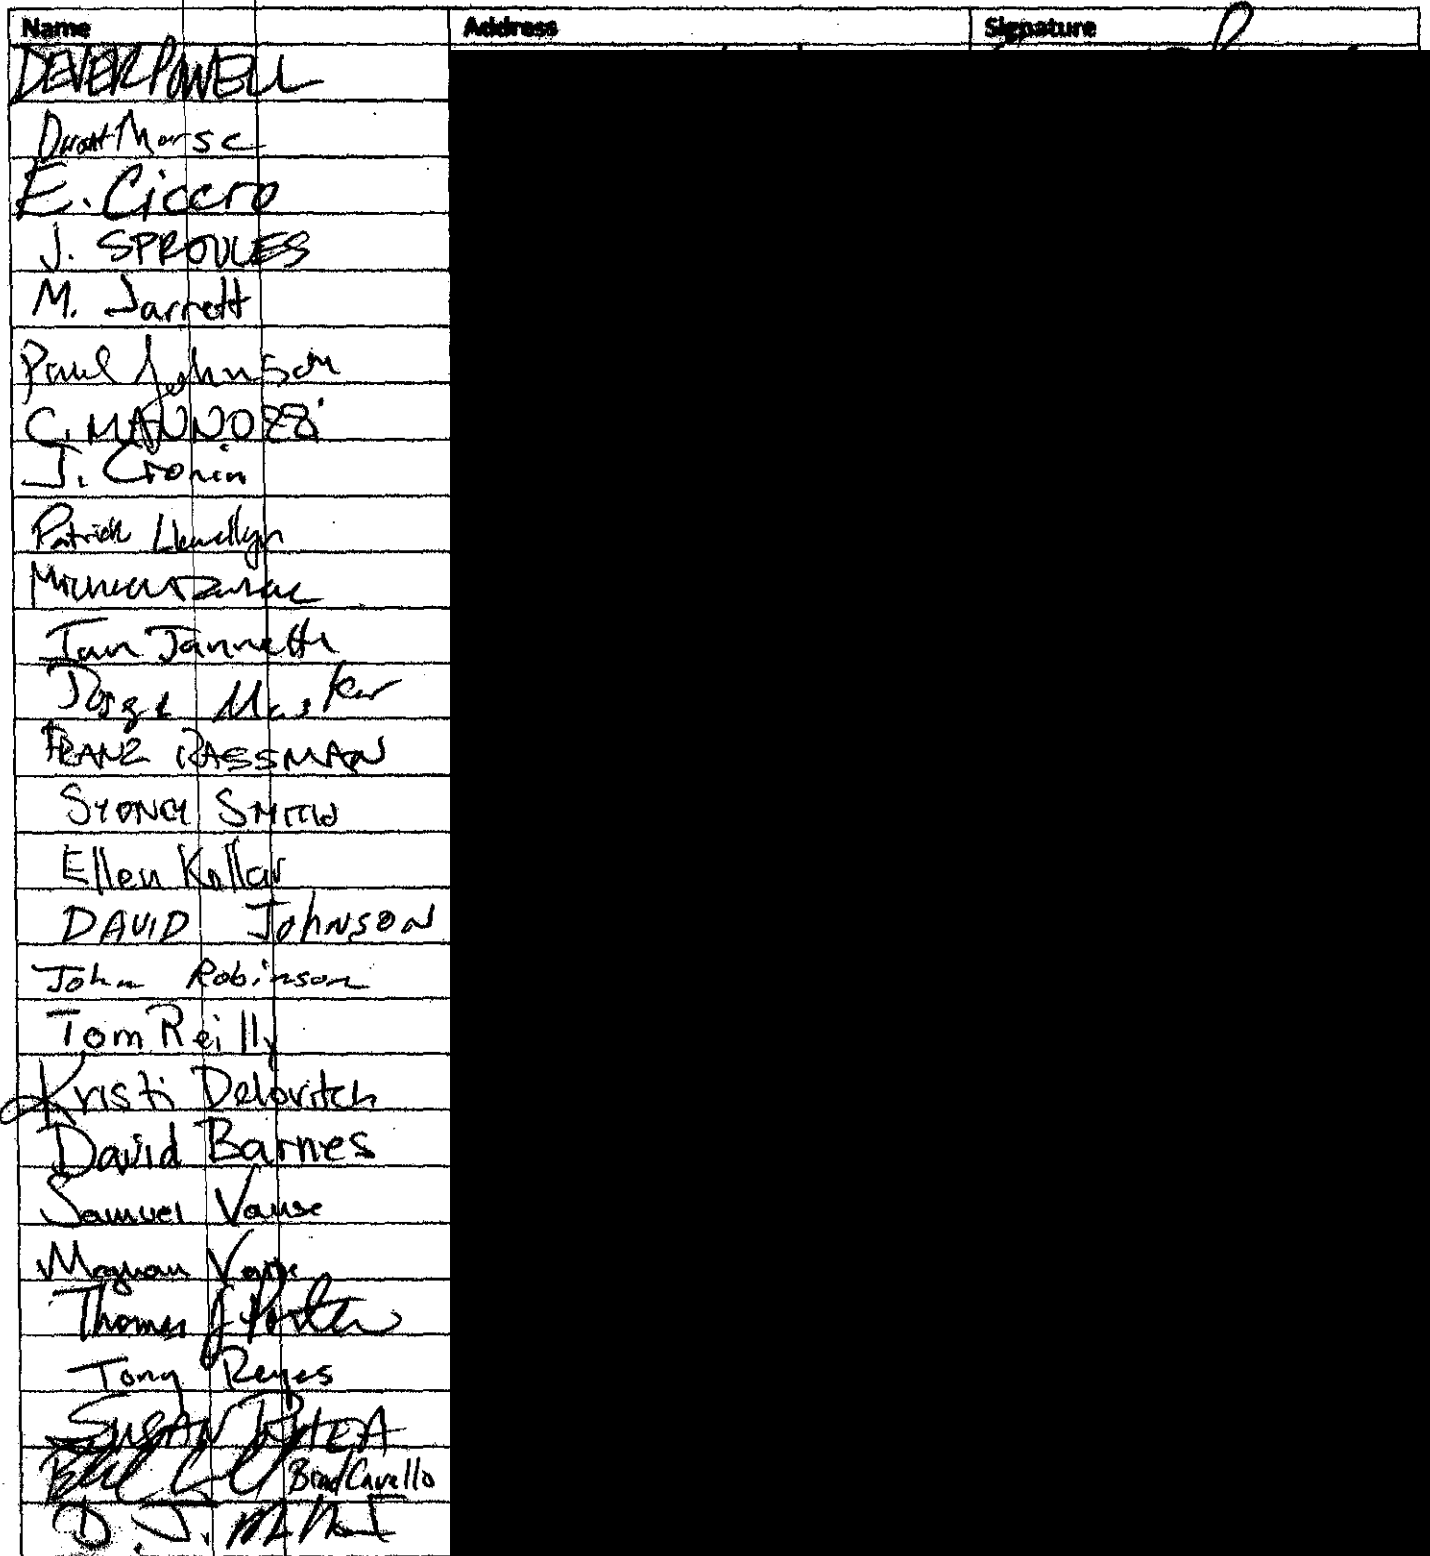 Name Address Signature
DEVER POWELL
Morse
E. Cicero
J. SPROULES
M. Jarrett
Paul Johnson
C. MANNOZZi
J. Cronin
Patrick Llewellyn
Ian Jannetti
FRANZ RASSMAN
SYDNEY SMITH
Ellen Kollar
DAVID JohNSON
John Robinson
Tom Reilly
Kristi Delovitch
David Barnes
Samuel Vause
Vause
Thomas J Porter
Tony Reyes
SUSAN RHEA
Brad Cavello
D. J.